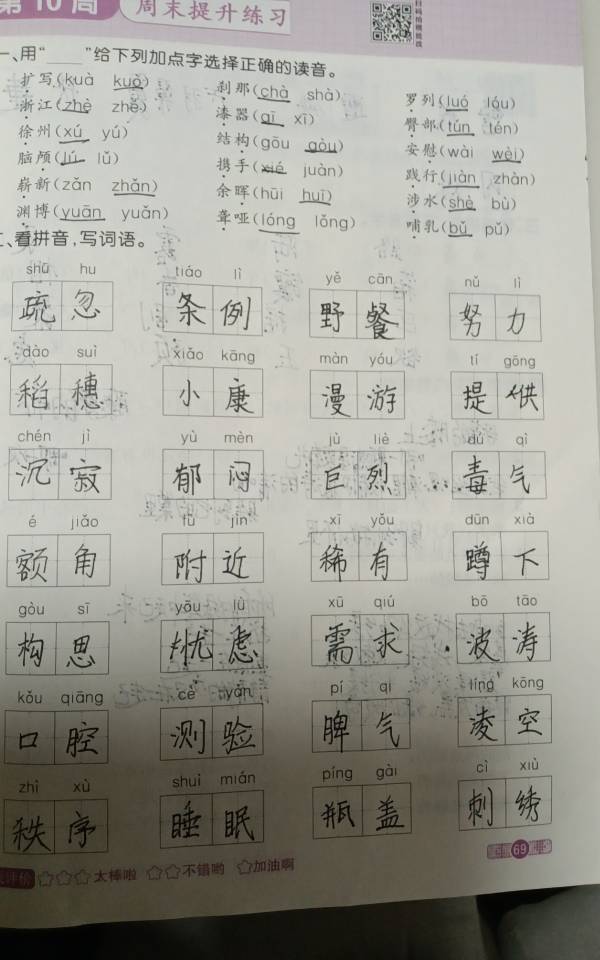 第10周 周末提升练习
一、用“____”给下列加点字选择正确的读音。
扩写(kuà kuò) 刹那(chà shà) 罗列(luó lóu)
浙江(zhè zhě) 漆器(qī xī) 臀部(tún tén)
徐州(xú yú) 结构(gōu gòu) 安慰(wài wèi)
脑颅(lú lǔ) 携手(xié juàn) 践行(jiàn zhàn)
崭新(zǎn zhǎn) 余晖(hūi huī) 涉水(shè bù)
渊博(yuān yuǎn) 聋哑(lóng lǒng) 哺乳(bǔ pǔ)
二、看拼音,写词语。
shū hu tiáo lì yě cān nǔ lì
疏忽 条例 野餐 努力
dào suì xiǎo kāng màn yóu tí gōng
稻穗 小康 漫游 提供
chén jì yù mèn jù liè dú qì
沉寂 郁闷 巨烈 毒气
é jiǎo fù jìn xī yǒu dūn xià
额角 附近 稀有 蹲下
gòu sī yōu lǜ xū qiú bō tāo
构思 忧虑 需求 波涛
kǒu qiāng cè yàn pí qi líng kōng
口腔 测验 脾气 凌空
zhì xù shuì mián píng gài cì xiù
秩序 睡眠 瓶盖 刺绣
69
评价 ☆☆☆太棒啦 ☆☆不错哟 ☆加油啊